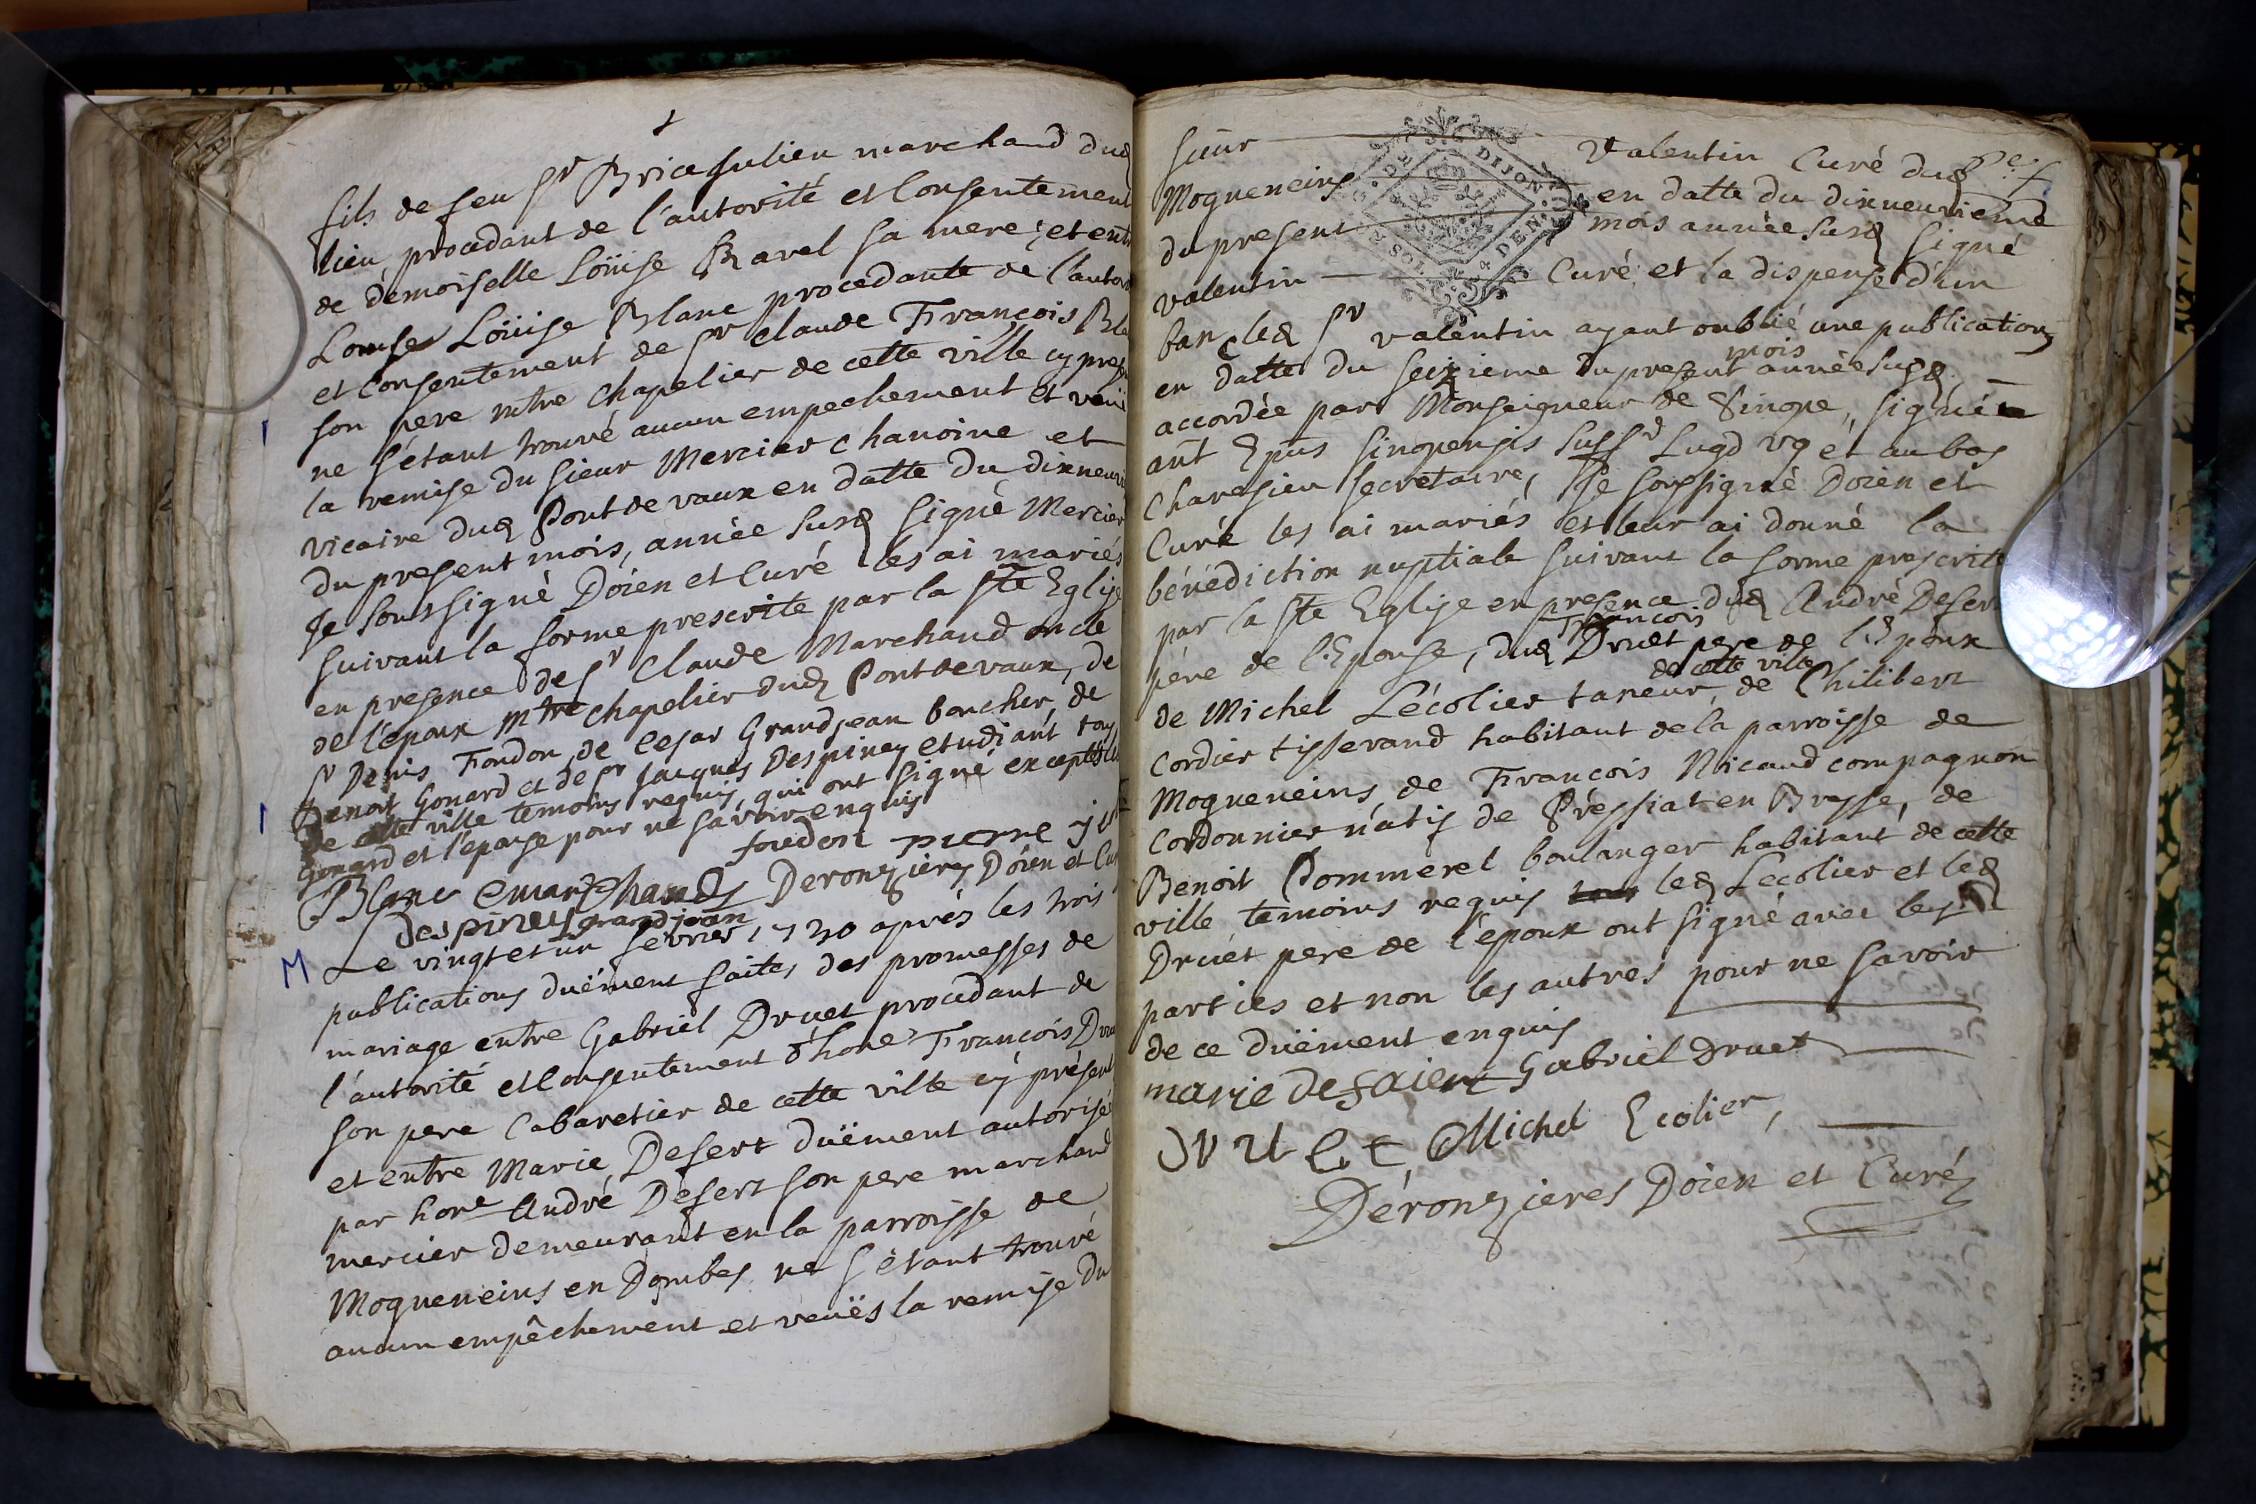 fils de feu Sr Brice Julien marchand dud
lieu procedant de l'autorité et Consentement
de demoiselle Loüise Ravel sa mere; et entre
Louise Loüise Blanc procedante de l'autor
et Consentement de Sr Claude François Bla
son pere mtre Chapelier de cette ville cy pres
ne s'étant trouvé aucun empechement et veüe
la remise du sieur Mercier Chanoine et
vicaire dud Pontdevaux en datte du dixneuvi
du present mois, année susd signé Mercier
Je Soussigné Doien et Curé les ai mariés
suivant la forme prescrite par la Ste Eglise
en presence de Sr Claude Marchand oncle
de l'epoux mtre chapelier dud Pontdevaux, de
Sr Denis Fondon, de Cesar Grandjean boucher, de
Benoit Gonard et de Sr Jacques Despiney etudiant tous
de cette ville temoins requis qui ont signé exceptés led
Gonard et l'epouse pour ne savoir enquis
foudon pierre
Blanc C marchand Deronzieres Doien et Cur
Despiney grandjean
M Le vingt et un fevrier 1730 après les trois
publications duëment faites des promesses de
mariage entre Gabriel Druet procedant de
l'autorité et Consentement d'hone François Dru
son pere Cabaretier de cette ville cy présent
et entre Marie Desert duëment autorisée
par hone André Desert son pere marchand
mercier demeurant en la parroisse de
Mogueneins en Dombes ne s'étant trouvé
aucun empêchement et veuës la remise du
sieur Valentin Curé dud
Mogueneins en datte du dixneuvieme
du present mois année susd signé
valentin Curé et la dispense d'un
ban led Sr valentin ayant oublié une publication
en datte du seizieme du present mois année susd
accordée par Monseigneur de Sinope, signé
ant Epus sinopensis suffr Lugd vg et au bas
Charesieu secretaire, Je soussigné Doien et
Curé les ai mariés et leur ai donné la
bénédiction nuptiale suivant la forme prescrite
par la Ste Eglise en presence dud André Desert
père de l'Epouse, dud François Druet pere de l'Epoux
de Michel Lécolier taneur de cette ville, de Philibert
Cordier tisserand habitant de la parroisse de
Mogueneins de François Nicaud compagnon
Cordonnier natif de Préssiat en Bresse, de
Benoit Pommerel boulanger habitant de cette
ville temoins requis led Lecolier et led
Druet pere de l'epoux ont signé avec les
parties et non les autres pour ne savoir
de ce duëment enquis
marie desaiert Gabriel Druet
Druet Michel Ecolier,
Déronzieres Doien et Curé
G. DE DIJON
2 SOL. 4 DEN.